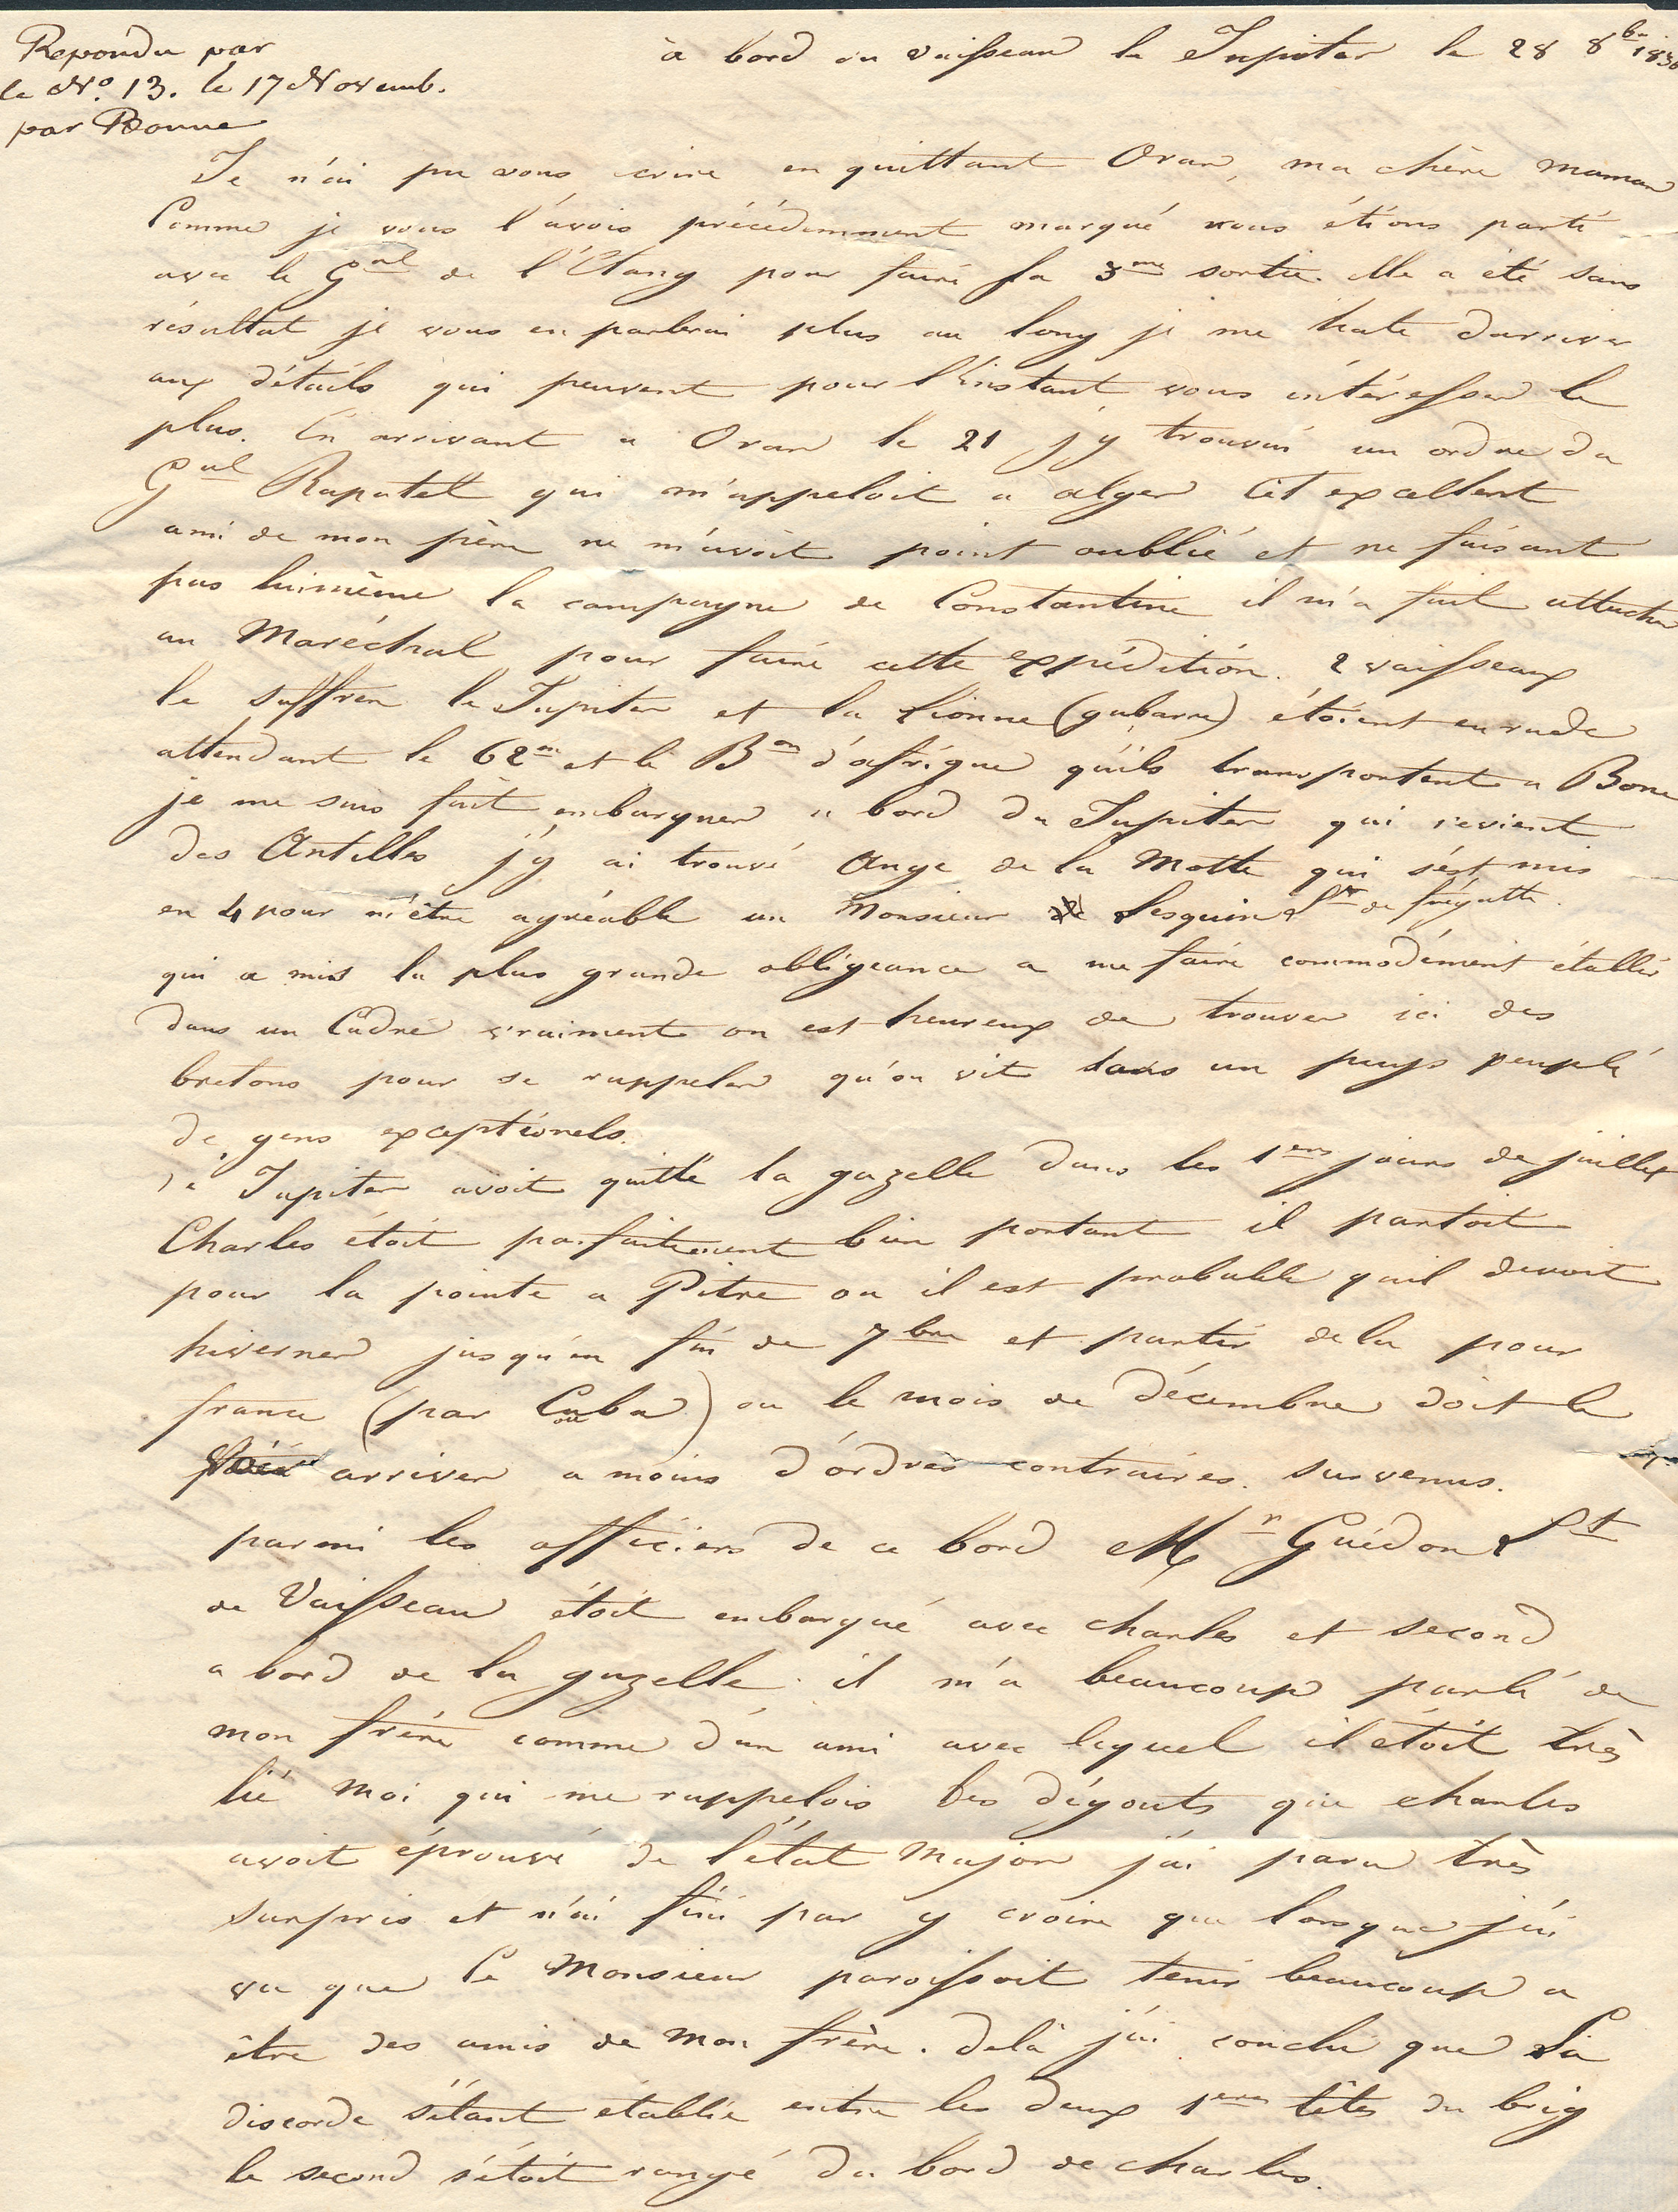 Repondu par
le N.o 13. le 17 Novemb.
par Bonne
à bord du vaisseau le Jupiter le 28 8bre 1836
Je n'ai pu vous écrire en quittant Oran, ma chère maman
Comme je vous l'avois précédemment marqué nous étions parti
avec le Gal de l'Etang pour faire la 3me sortie. Elle a été sans
résultat je vous en parlerai plus au long je me hate d'arriver
aux détails qui peuvent pour l'instant vous intéresser le
plus. En arrivant a Oran le 21 j'y trouvai un ordre du
Gal Rapatel qui m'appeloit a alger Cet excellent
ami de mon père ne m'avoit point oublié et ne faisant
pas luimême la campagne de Constantine il m'a fait attacher
au Maréchal pour faire cette expédition. 2 vaisseaux
le Suffren le Jupiter et la Lionne (gabarre) étoient en rade
attendant le 62me et le Bon d'afrique qu'ils transportent a Bone
je me suis fait embarquer a bord du Jupiter qui revient
des Antilles j'y ai trouvé Ange de la Motte qui s'est mis
en 4 pour m'être agréable un Monsieur Lesquin Lt de frégatte.
qui a mis la plus grande obligeance a me faire commodément établir
dans un Cadre vraiment on est heureux de trouver ici des
bretons pour se rappeler qu'on vit dans un pays peuplé
de gens exceptionels.
Le Jupiter avoit quitté la gazelle dans les 1ers jours de juillet
Charles étoit parfaitement bien portant il partoit
pour la pointe a Pitre ou il est probable quil devoit
hiverner jusqu'en fin de 7bre et partir dela pour
france (par Cuba) ou le mois de décembre doit le
voir arriver a moins d'ordres contraires survenus.
parmi les officiers de ce bord Mr Guédon Lt
de Vaisseau étoit embarqué avec charles et second
a bord de la gazelle. il m'a beaucoup parlé de
mon frère comme d'un ami avec lequel il étoit très
lié Moi qui me rappelois les dégouts que charles
avoit éprouvé de l'état Major j'ai paru très
surpris et n'ai fini par y croire que lorsque j'ai
vu que ce Monsieur paroissoit tenir beaucoup a
être des amis de mon frère. delà j'ai conclu que la
discorde s'étant établie entre les deux 1ères têtes du brig
le second s'étoit rangé du bord de charles.